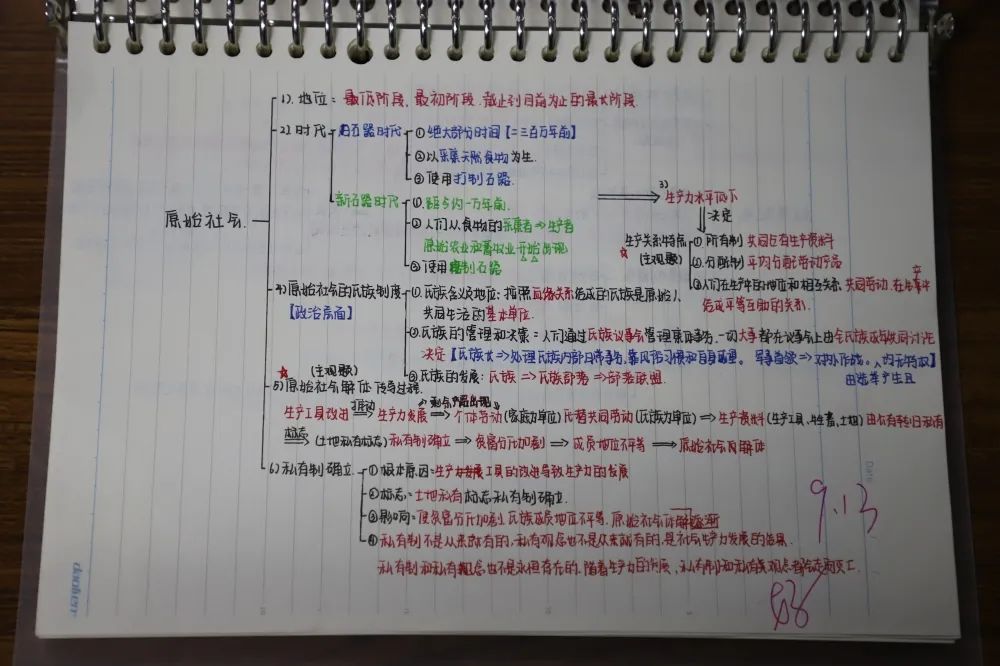 原始社会
1). 地位：最低阶段，最初阶段．截止到目前为止的最长阶段
2) 时代
旧石器时代
① 绝大部分时间【二三百万年前】
② 以采集天然食物为生．
③ 使用打制石器．
新石器时代
①. 距今约一万年前．
② 人们从食物的采集者⇒生产者
原始农业和畜牧业开始出现
③ 使用磨制石器
3)
生产力水平低下
决定
生产关系特点
(主观题)
① 所有制 共同占有生产资料
②. 分配制 平均分配劳动产品
③ 人们在生产中的地位和相互关系 共同劳动．在
结成平等互助的关系．
4) 原始社会的氏族制度
【政治层面】
①. 氏族含义及地位：按照血缘关系结成的氏族是原始人
共同生活的基本单位．
②. 氏族的管理和决策：人们通过氏族议事会管理集体事务．一切大事都在议事会上由全氏族成年
决定【氏族长⇒处理氏族内部日常事务，靠风俗习惯和自身威望． 军事首领⇒对外作战．人
由选举产生且
③ 氏族的发展：氏族⇒氏族部落⇒部落联盟．
(主观题)
5) 原始社会解体
剩余产品出现
生产工具改进 推动 ⇒ 生产力发展 ⇒ 个体劳动 (家庭为单位) 代替共同劳动 (氏族为单位) ⇒ 生产资料 (生产工具、牲畜、土地) 由公有转归私有
标志 ⇒ (土地私有标志) 私有制确立 ⇒ 贫富分化加剧 ⇒ 成员地位不平等 ⇒ 原始社会解体
6) 私有制确立
① 根本原因：生产工具的改进导致生产力的发展
② 标志：土地私有标志私有制确立．
③ 影响：使贫富分化加剧，氏族成员地位不平等．原始社会
④ 私有制不是从来就有的，私有观念也不是从来就有的，是社会生产力发展的结果．
私有制和私有观念也不是永恒存在的．随着生产力的发展，私有制和私有观念
9.13
Date